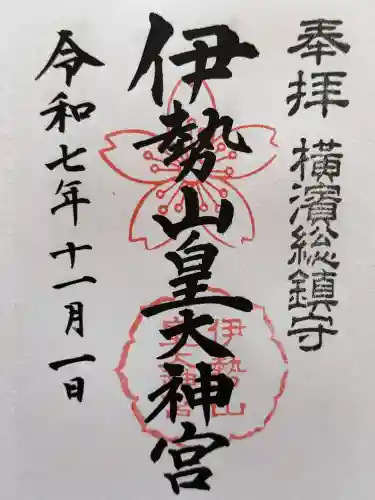 奉拝
横濱総鎮守
伊勢山皇大神宮
伊勢山
皇大神宮
令和七年十一月一日